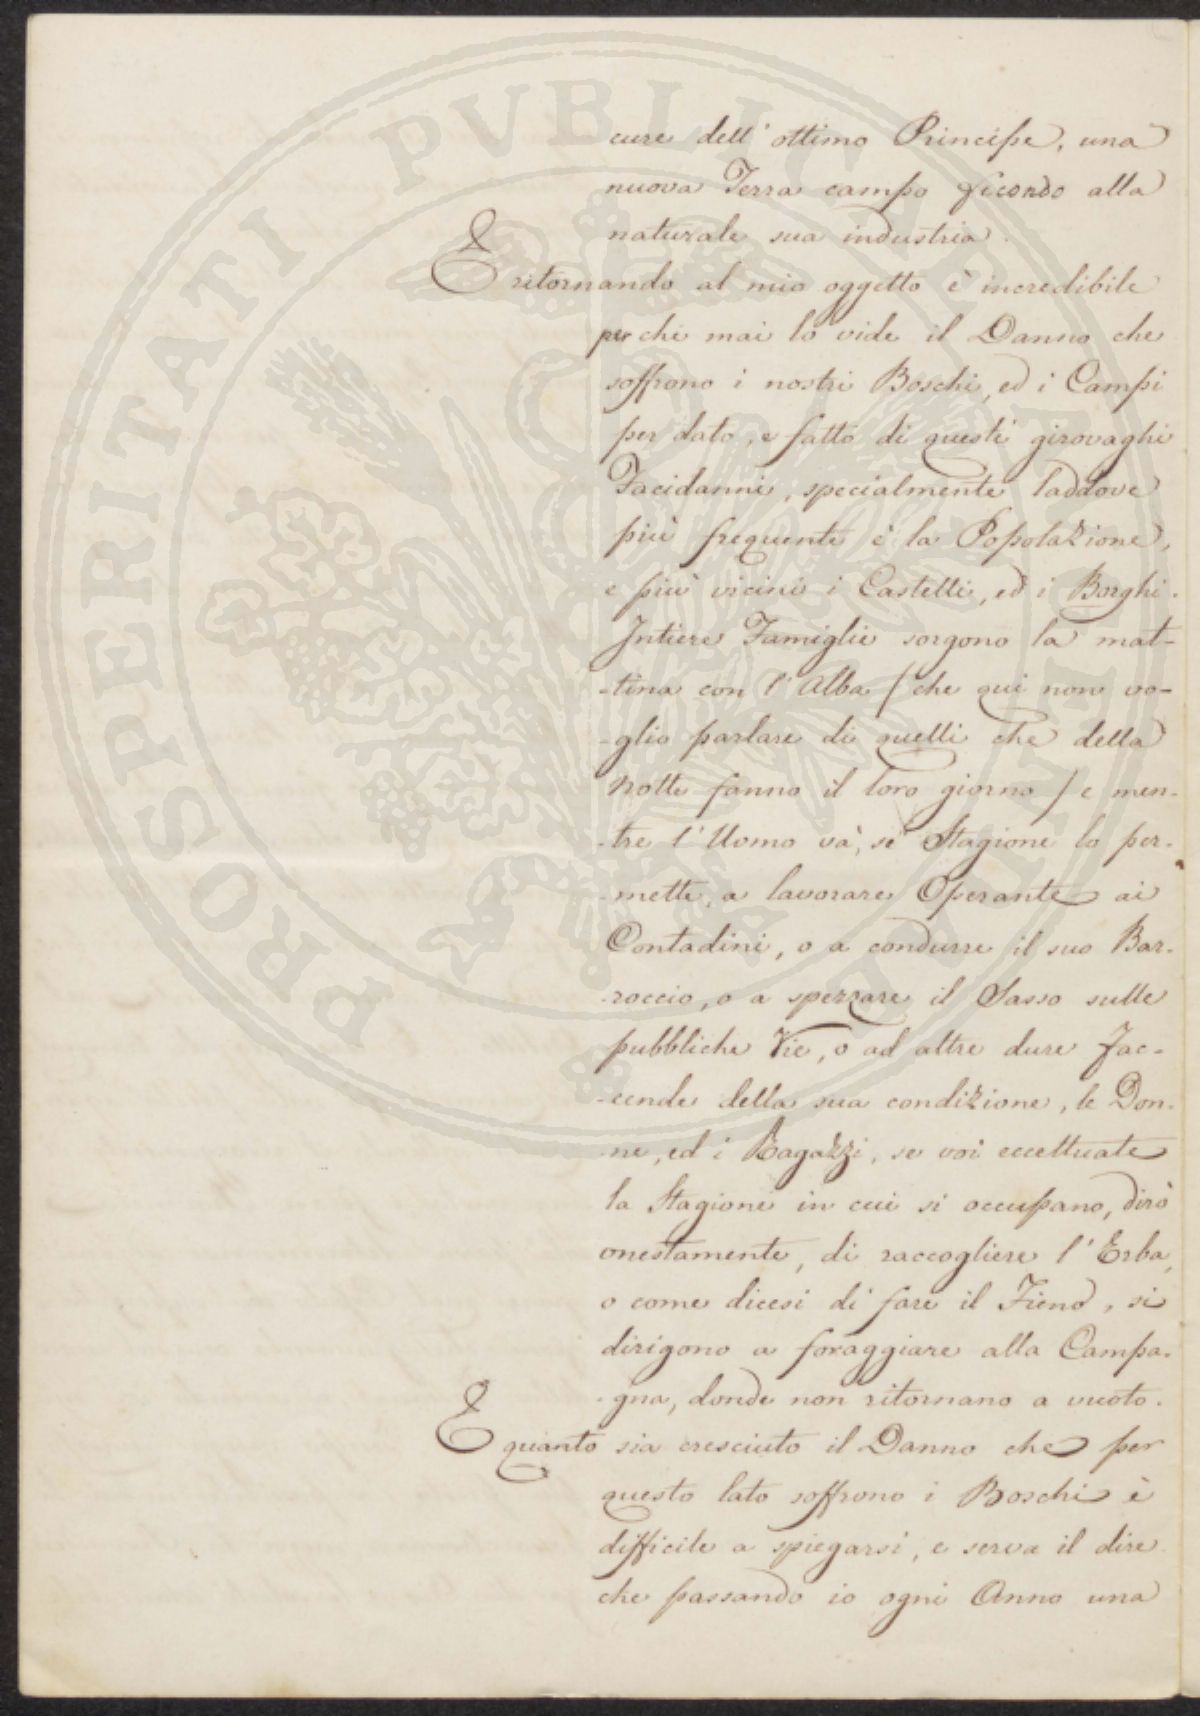 cure dell' ottimo Principe, una
nuova Terra campo fecondo alla
naturale sua industria.
E ritornando al mio oggetto è incredibile
per chi mai lo vide il Danno che
soffrono i nostri Boschi, ed i Campi
per dato, e fatto di questi girovaghi
Facidanni, specialmente laddove
più frequente è la Popolazione,
e più vicini i Castelli, ed i Borghi.
Intiere Famiglie sorgono la mat-
-tina con l'Alba / che qui non vo-
-glio parlare di quelli che della
Notte fanno il loro giorno / e men-
-tre l'Uomo và, se Stagione lo per-
-mette, a lavorare Operante ai
Contadini, o a condurre il suo Bar-
-roccio, o a spezzare il Sasso sulle
pubbliche Vie, o ad altre dure Fac-
-cende della sua condizione, le Don-
-ne, ed i Ragazzi, se voi eccettuate
la Stagione in cui si occupano, dirò
onestamente, di raccogliere l'Erba,
o come dicesi di fare il Fieno, si
dirigono a foraggiare alla Campa-
-gna, donde non ritornano a vuoto.
E quanto sia cresciuto il Danno che per
questo lato soffrono i Boschi è
difficile a spiegarsi, e serva il dire
che passando io ogni Anno una
PROSPERITATI PVBLICAE